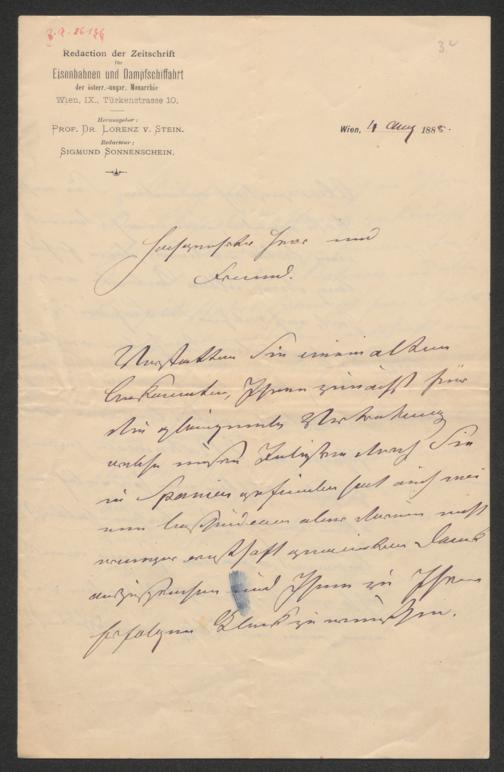 Redaction der Zeitschrift
für
Eisenbahnen und Dampfschiffahrt
der österr.-ungar. Monarchie
Wien, IX., Türkenstrasse 10.
Herausgeber:
PROF. DR. LORENZ V. STEIN.
Redacteur:
SIGMUND SONNENSCHEIN.
Wien, 4 Aug 1888.
Hochgeehrter Herr und
Freund.
Verstatten Sie einem alten
Bekannten, Ihnen zunächst für
die glänzende Vertretung
welche unsere durch Sie
in Spanien gefunden hat auch
einen bescheidenen aber darum nicht
weniger ernsthaft gemeinten Dank
auszusprechen und Ihnen zu Ihren
Erfolgen Glück zu wünschen.